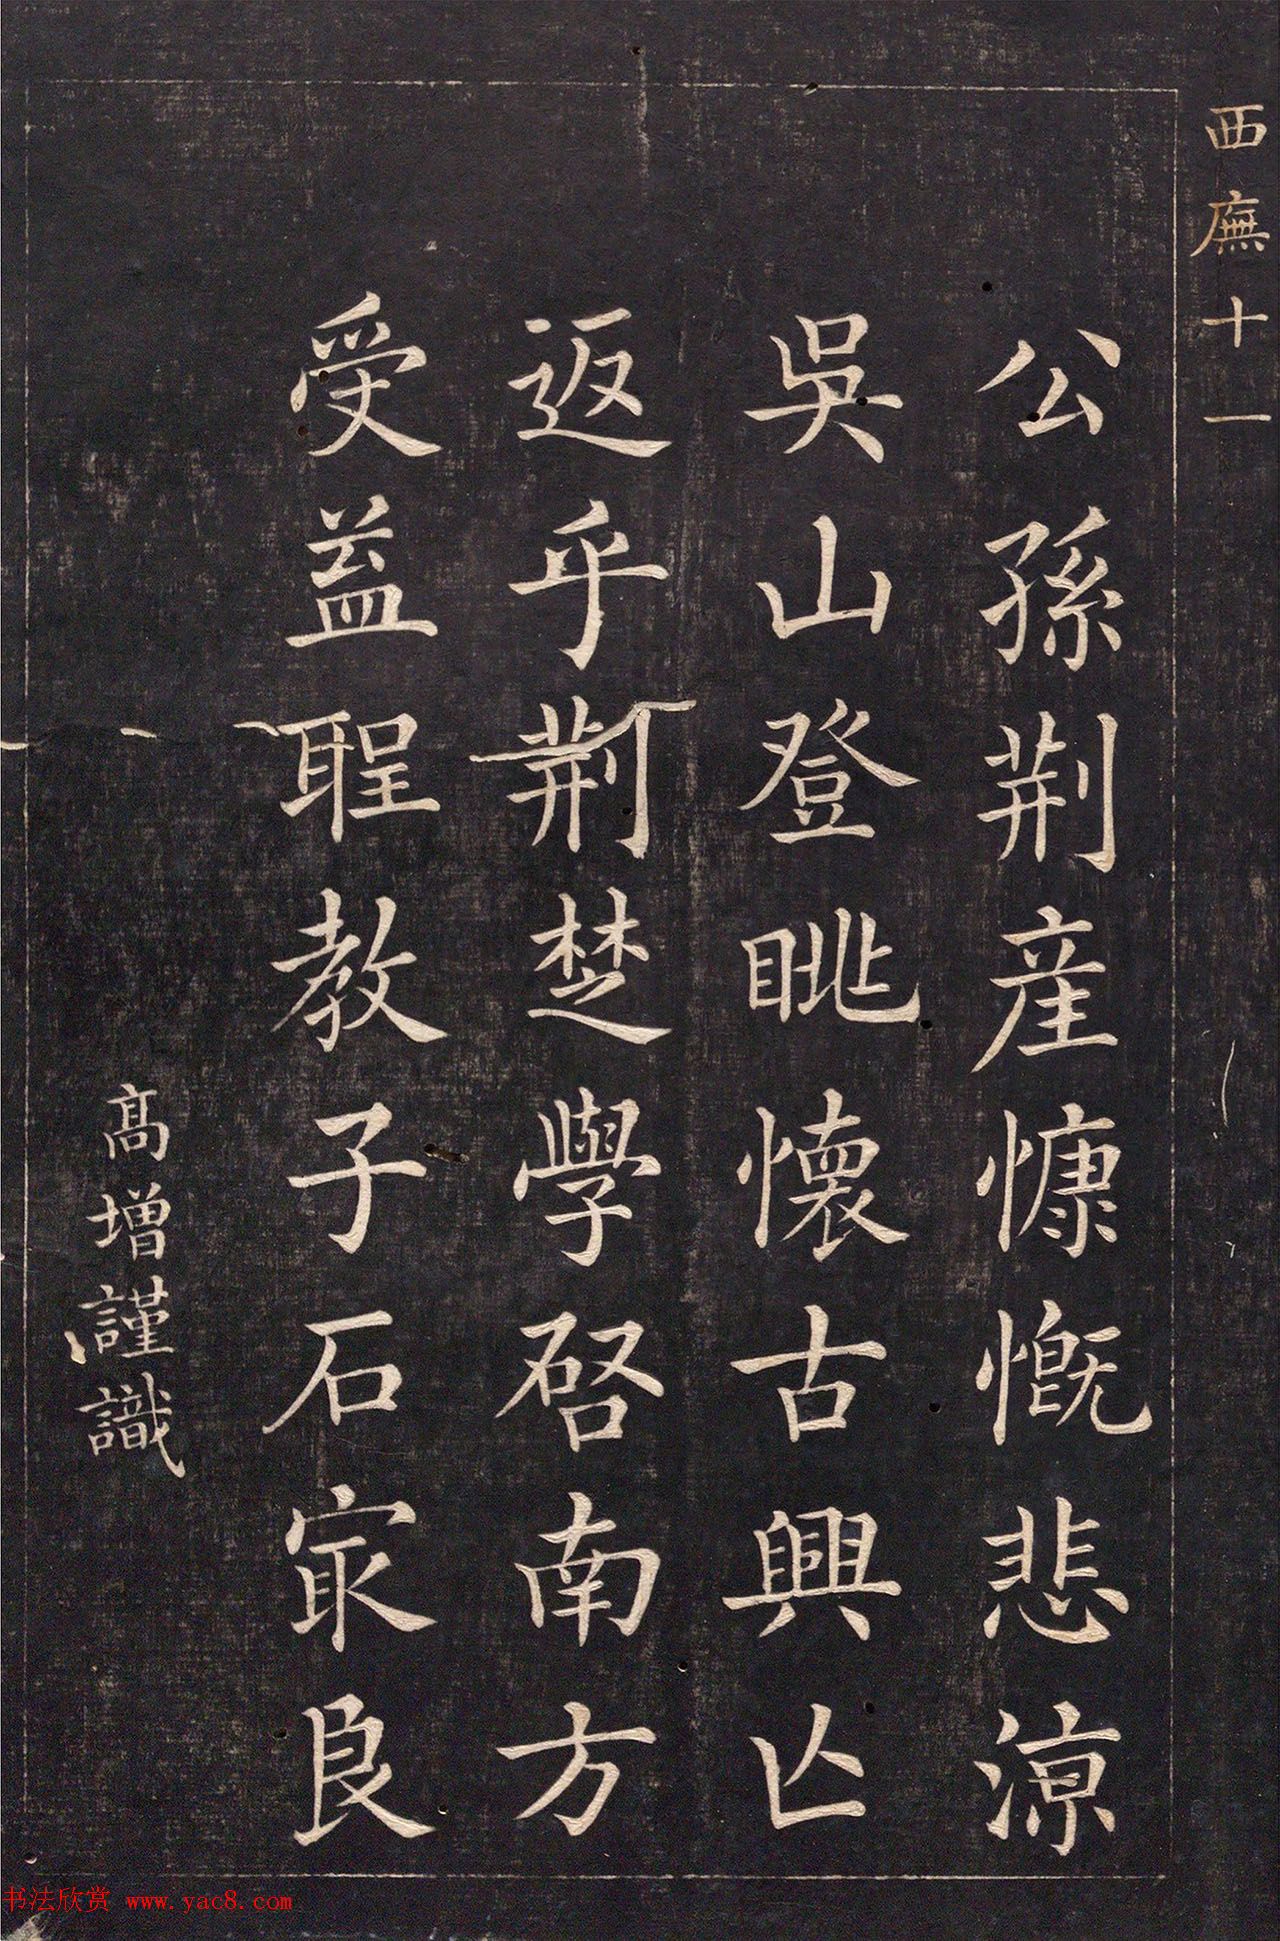 西廡十一
公孫荆産慷慨悲涼
吳山登眺懷古興亡
返乎荆楚學啓南方
受益聖教子石冣良
高增謹識
书法欣赏 www.yac8.com